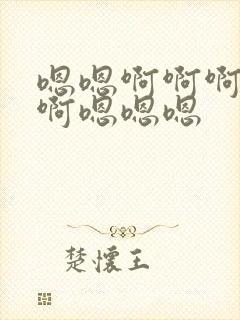 嗯嗯啊啊啊
啊嗯嗯嗯
楚怀王